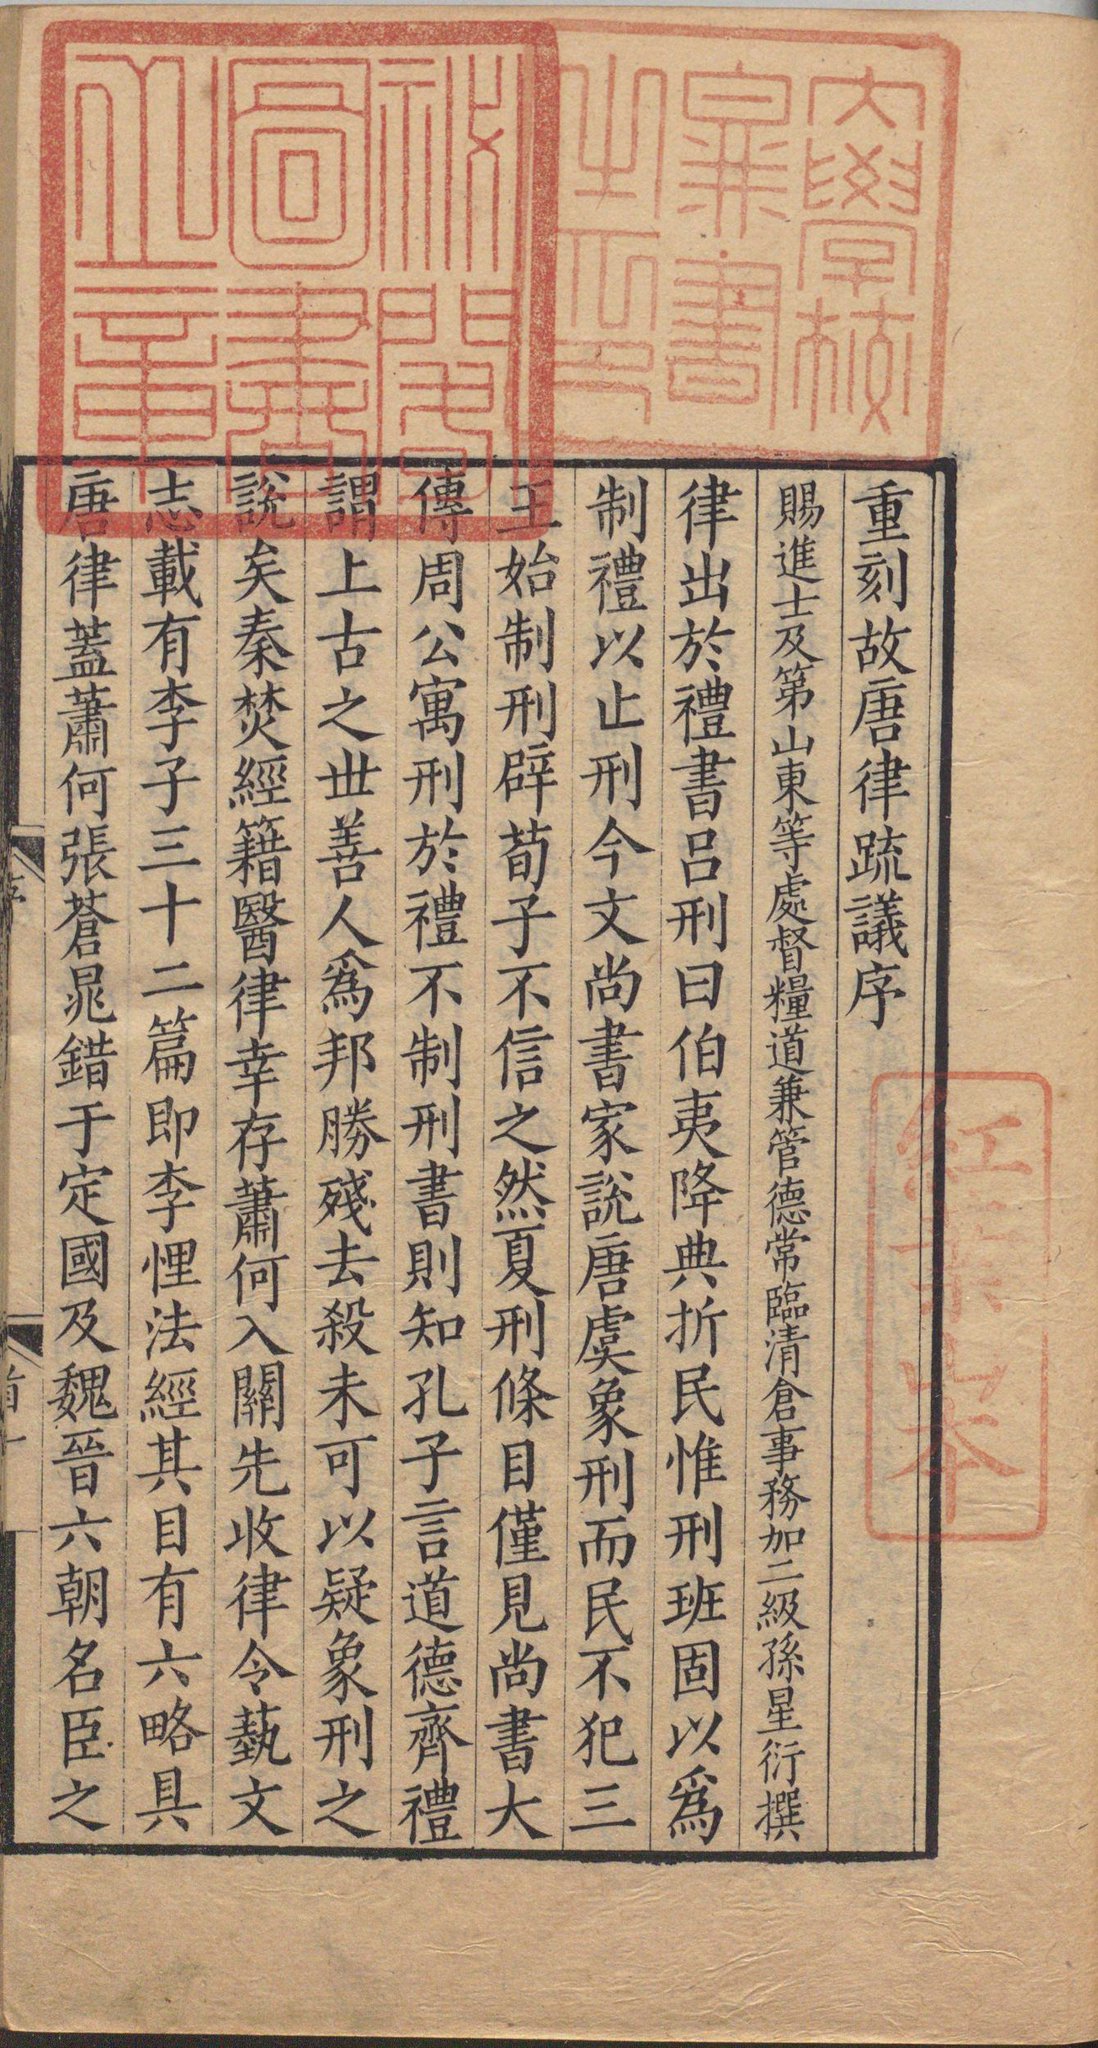 重刻故唐律疏議序
賜進士及第山東等處督糧道兼管德常臨清倉事務加二級孫星衍撰
律出於禮書呂刑曰伯夷降典折民惟刑班固以爲
制禮以止刑今文尚書家說唐虞象刑而民不犯三
王始制刑辟荀子不信之然夏刑條目僅見尚書大
傳周公寓刑於禮不制刑書則知孔子言道德齊禮
謂上古之世善人爲邦勝殘去殺未可以疑象刑之
說矣秦焚經籍醫律幸存蕭何入關先收律令藝文
志載有李子三十二篇即李悝法經其目有六略具
唐律蓋蕭何張蒼晁錯于定國及魏晉六朝名臣之
大學校
兼書
之印
祕閣
圖書
之章